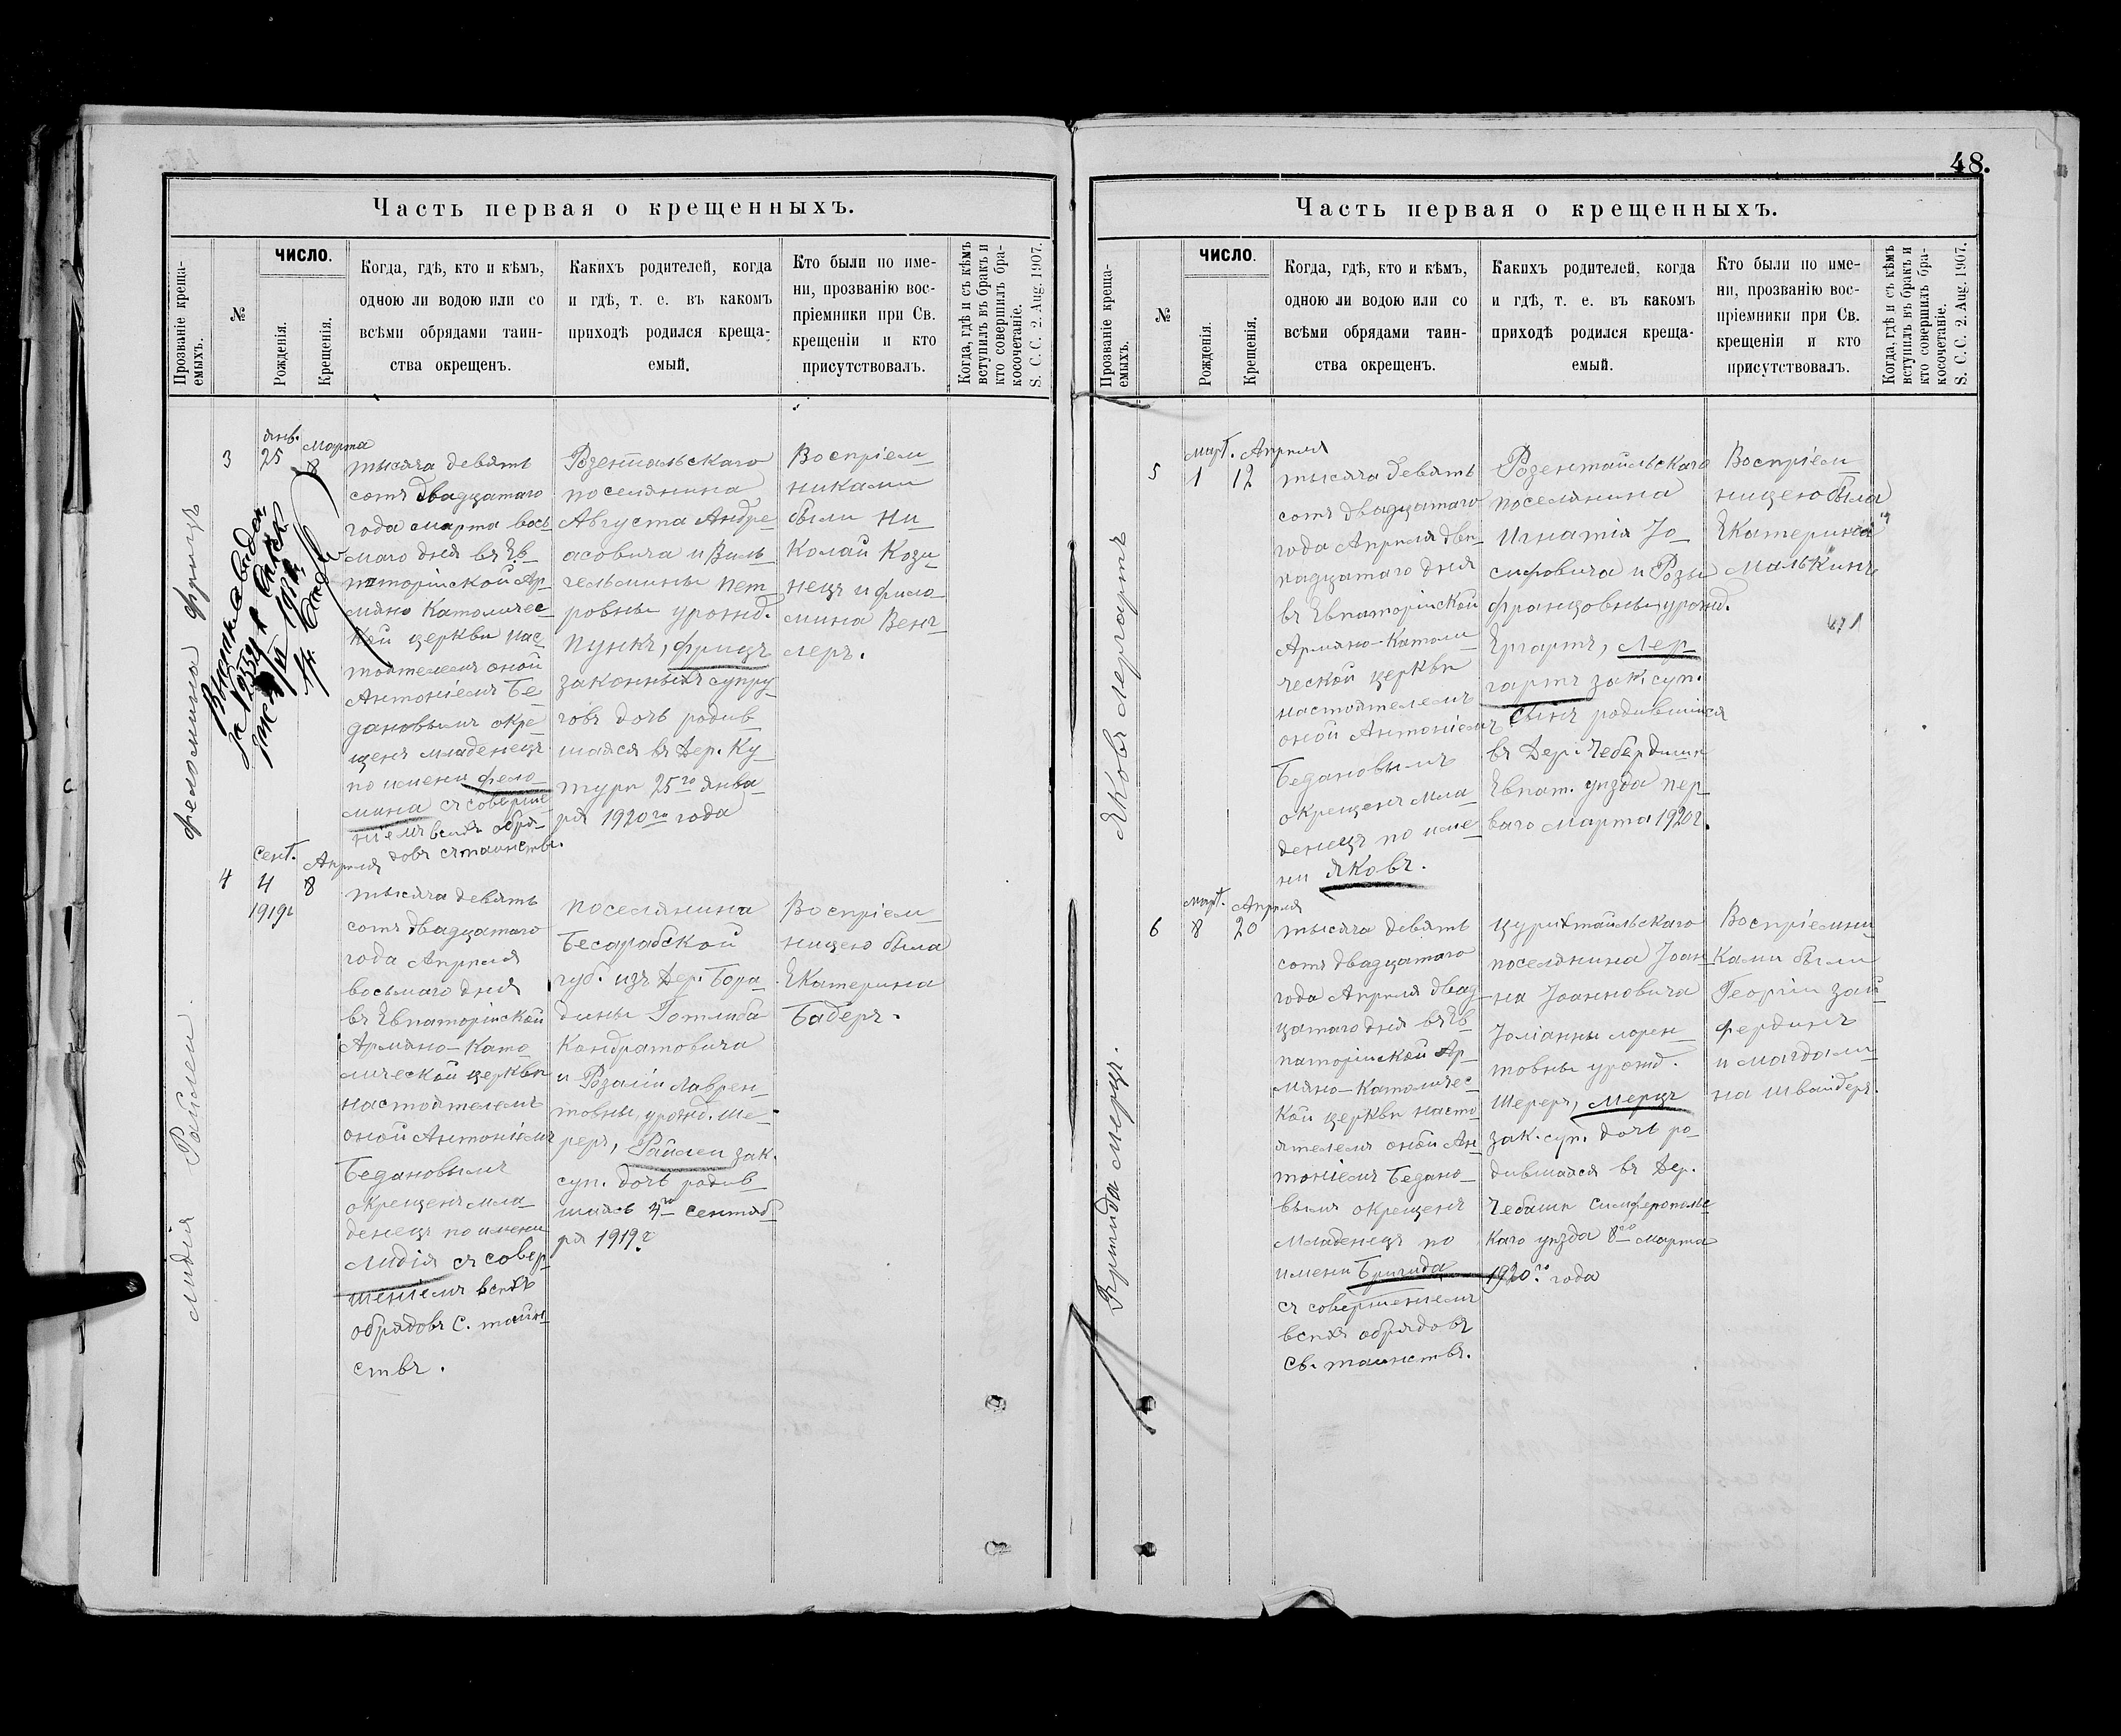 Часть первая о крещенныхъ.
Прозваніе креща-
емыхъ.
№
ЧИСЛО.
Рожденія.
Крещенія.
Когда, гдѣ, кто и кѣмъ,
одною ли водою или со
всѣми обрядами таин-
ства окрещенъ.
Какихъ родителей, когда
и гдѣ, т. е. въ какомъ
приходѣ родился креща-
емый.
Кто были по име-
ни, прозванію вос-
пріемники при Св.
крещеніи и кто
присутствовалъ.
Когда, гдѣ и съ кѣмъ
вступилъ въ бракъ и
кто совершилъ бра-
косочетаніе.
S. C. C. 2. Aug. 1907.
Феломина Фрицъ
3
янв.
25
Марта
8
тысяча девять
сотъ двадцатаго
года марта вось
маго дня въ Ев-
паторійской Ар-
мяно Католичес-
кой церкви нас
тоятелемъ оной
Антоніемъ Бе
дановымъ окре
щенъ младенецъ
по имени Фело-
мина съ соверше
ніемъ всѣхъ обря-
довъ съ таинствъ.
Розентальскаго
поселянина
Августа Андре
асовича и Виль
гельмины Пет
ровны урожд.
Пункъ, Фрицъ
законныхъ супру
говъ дочь родив
шаяся въ Дер. Ку
тури 25го янва
ря 1920го года
Воспріем
никами
были Ни
колай Кози
нецъ и Фило
мина Венг
леръ.
Лидія Райслеи
4
Сент.
4
1919г
Апреля
8
тысяча девять
сотъ двадцатаго
года Апреля
восьмаго дня
въ Евпаторійской
Армяно-Като-
лической церкви
настоятелемъ
оной Антоніемъ
Бедановымъ
окрещенъ мла-
денецъ по имени
Лидія съ совер-
шеніемъ всѣхъ
обрядовъ С. таин-
ствъ.
поселянина
Бесарабской
губ. изъ Дер. Боро-
дины Готлиба
Кондратовича
и Розаліи Лаврен-
товны, урожд. Ше-
реръ, Райслеи зак.
суп. дочь родив
шаясь 4го сентяб
ря 1919г
Воспріем
ницею была
Екатерина
Бадеръ.
48.
Часть первая о крещенныхъ.
Прозваніе креща-
емыхъ.
№
ЧИСЛО.
Рожденія.
Крещенія.
Когда, гдѣ, кто и кѣмъ,
одною ли водою или со
всѣми обрядами таин-
ства окрещенъ.
Какихъ родителей, когда
и гдѣ, т. е. въ какомъ
приходѣ родился креща-
емый.
Кто были по име-
ни, прозванію вос-
пріемники при Св.
крещеніи и кто
присутствовалъ.
Когда, гдѣ и съ кѣмъ
вступилъ въ бракъ и
кто совершилъ бра-
косочетаніе.
S. C. C. 2. Aug. 1907.
Яковъ Лергартъ
5
март.
1
Апреля
12
тысяча девять
сотъ двадцатаго
года Апреля две-
надцатаго дня
въ Евпаторійской
Армяно-Католи
ческой церкви
настоятелемъ
оной Антоніемъ
Бедановымъ
окрещенъ мла-
денецъ по име
ни Яковъ.
Розентальскаго
поселянина
Игнатія Іо
сифовича и Розы
Францовны, урожд.
Ергартъ, Лер
гартъ зак. суп.
сынъ родившійся
въ Дер. Чебердинки
Евпат. уѣзда пер
ваго марта 1920г.
Воспріем
ницею была
Екатерина
Малькинъ
Бригида Мерцъ.
6
март.
8
Апреля
20
тысяча девять
сотъ двадцатаго
года Апреля двад
цатаго дня въ Ев
паторійской Ар-
мяно-Католичес-
кой церкви насто
ятелемъ оной Ан
тоніемъ Бедано-
вымъ окрещенъ
Младенецъ по
имени Бригида
съ совершеніемъ
всѣхъ обрядовъ
Св. таинствъ.
Цурихтальскаго
поселянина Іоан
на Іоанновича
Юліанны Лорен-
товны урожд.
Шереръ, Мерцъ
зак. суп. дочь ро
дившаяся въ Дер.
Чебаши Симферопольс
каго уѣзда 8го марта
1920го года
Воспріемни
ками были
Георгіи Зай
фердинъ
и Магдали
на Швайдеръ.